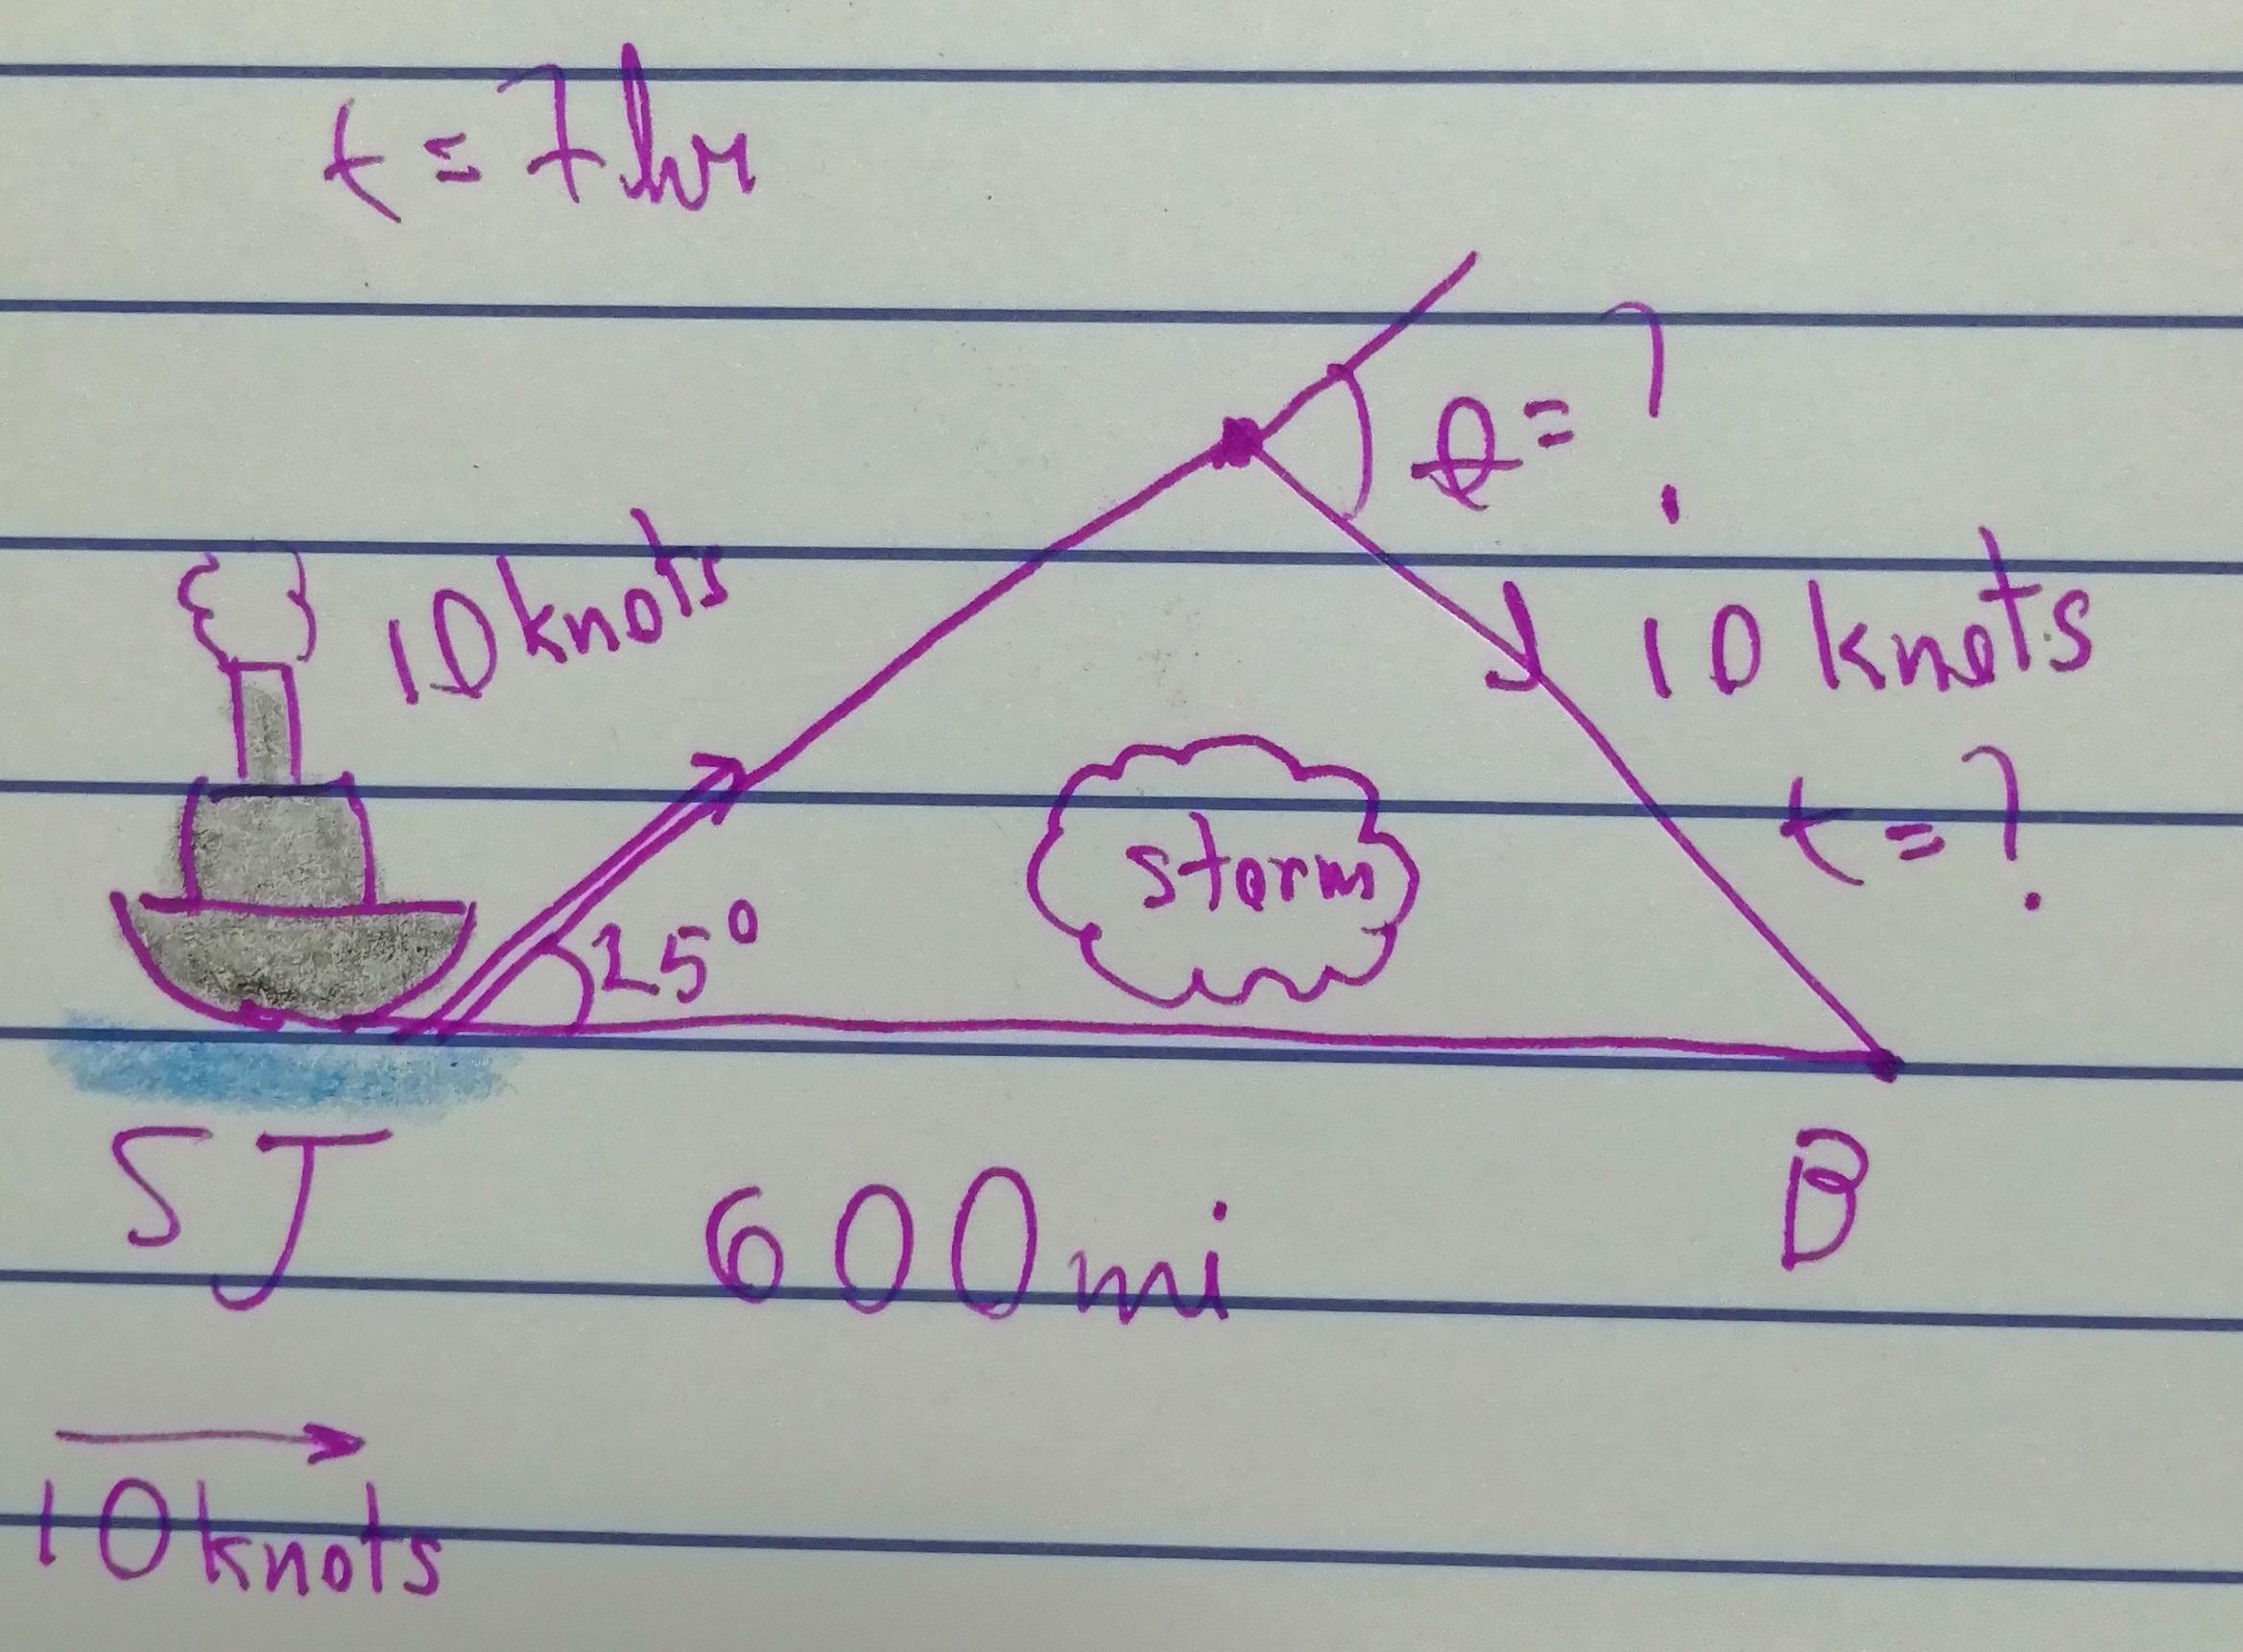 t = 7hr
θ = ?
10 knots
10 knots
t = ?
storm
25°
SJ
600mi
B
10 knots